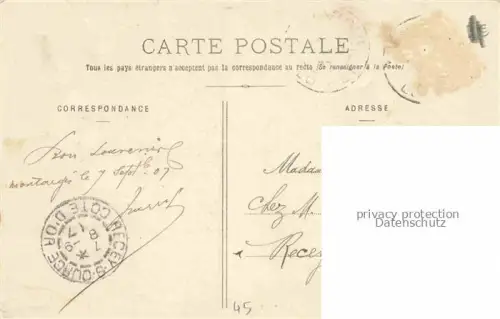 CARTE POSTALE
Tous les pays étrangers n'acceptent pas la correspondance au recto (Se renseigner à la Poste)
CORRESPONDANCE
ADRESSE
Bon Souvenir
montargis le 7 Septbre 07
Madam
chez M.
Recey
RECEY-S-OURCE
COTE D'OR
privacy protection
Vorschaubild
45